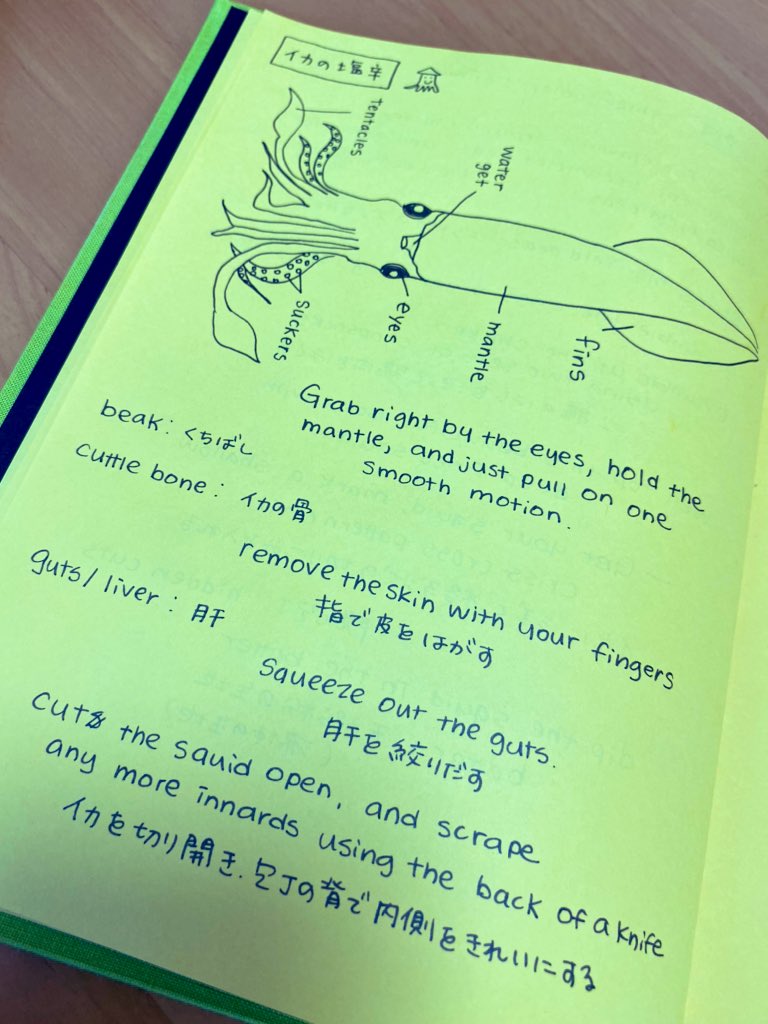 イカの塩辛
tentacles
water
get
suckers
eyes
mantle
fins
Grab right by the eyes, hold the
mantle, and just pull on one
smooth motion.
beak: くちばし
cuttle bone: イカの骨
remove the skin with your fingers
指で皮をはがす
guts/liver: 肝
Squeeze out the guts.
肝を絞りだす
cut the squid open, and scrape
any more innards using the back of a knife
イカを切り開き、包丁の背で内側をきれいにする